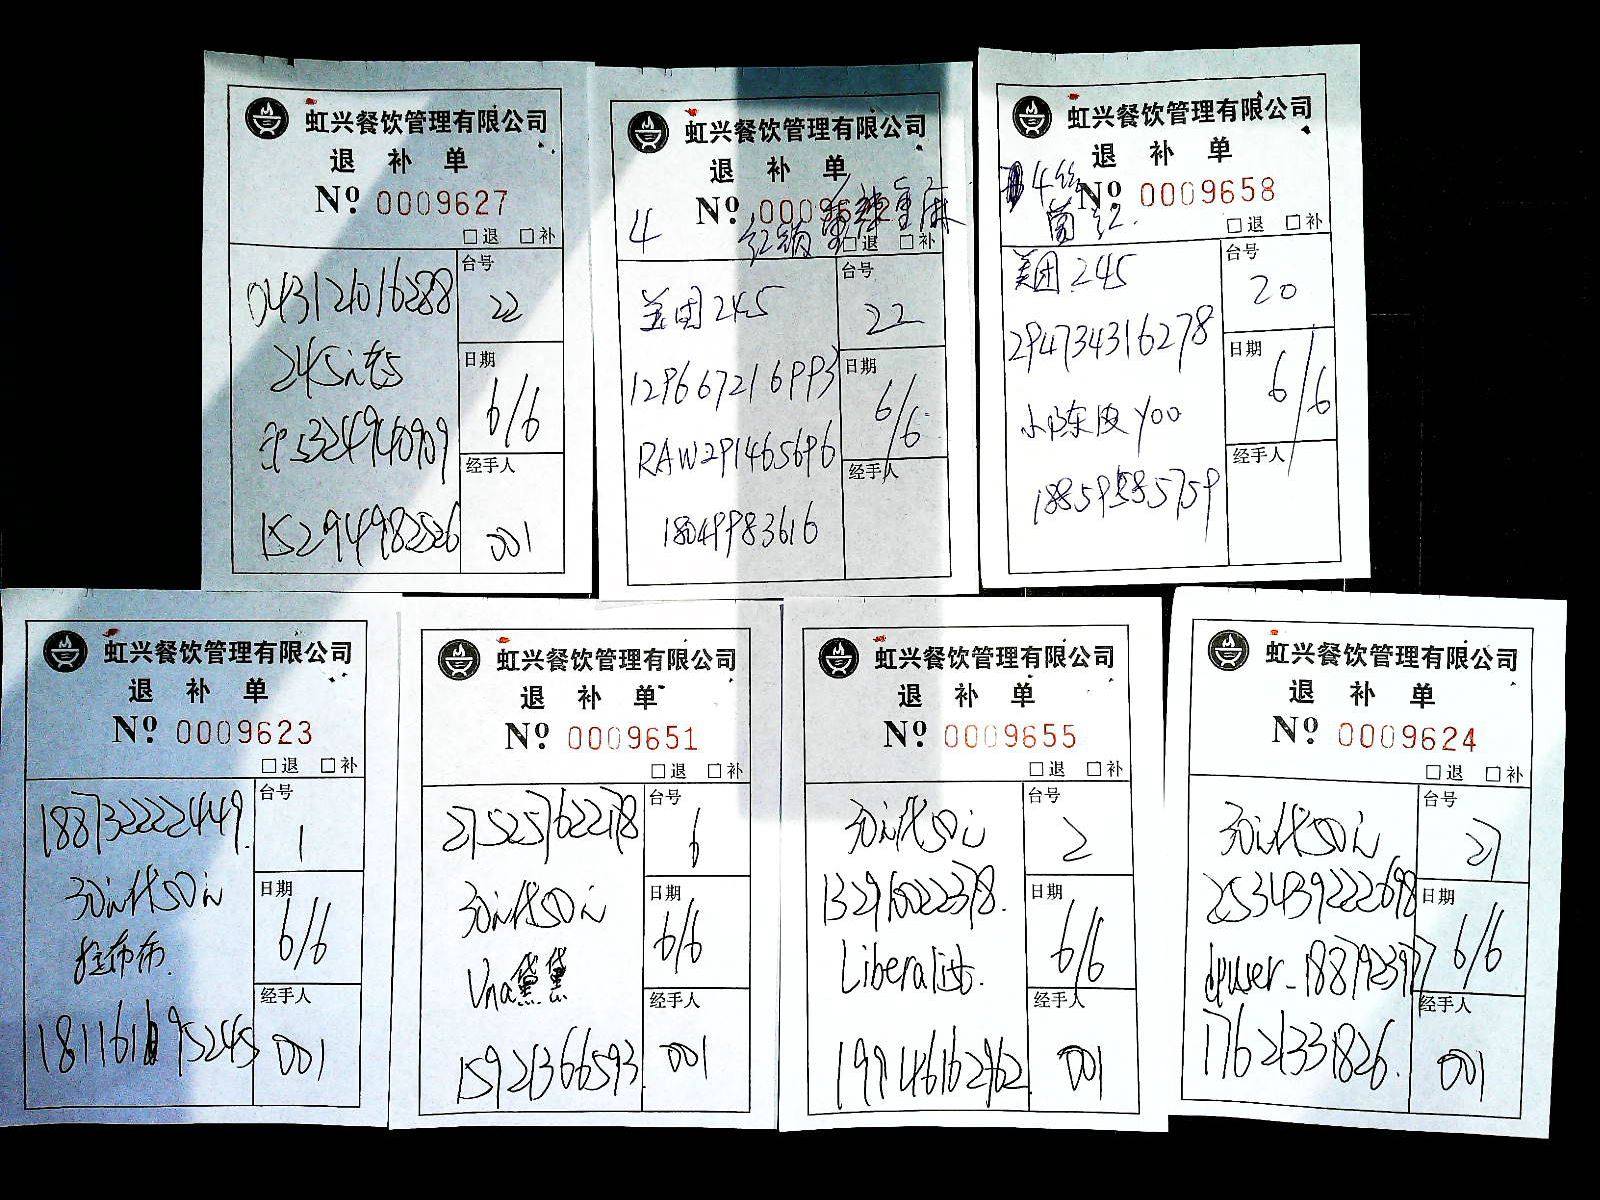 虹兴餐饮管理有限公司
退 补 单
Nº 0009627
□退 □补
043121016288
台号
22
245
日期
6/6
5324940909
经手人
15294982526
001
虹兴餐饮管理有限公司
退 补 单
Nº
4
□退 □补
美团245
台号
22
129667216993
日期
6/6
RAW291465696
经手人
18049983616
虹兴餐饮管理有限公司
退 补 单
4
Nº 0009658
菌 红.
□退 □补
美团245
台号
20
294734316278
日期
6/6
小陈皮yoo
经手人
18859585759
虹兴餐饮管理有限公司
退 补 单
Nº 0009623
□退 □补
188732222449.
台号
1
30元代50元
日期
6/6
拉布布.
经手人
001
虹兴餐饮管理有限公司
退 补 单
Nº 0009651
□退 □补
275257622178
台号
6
30元代50元
日期
6/6
Vna黛黛
经手人
15921366593
001
虹兴餐饮管理有限公司
退 补 单
Nº 0009655
□退 □补
30元代50元
台号
2
日期
6/6
经手人
19946162962
001
虹兴餐饮管理有限公司
退 补 单
Nº 0009624
□退 □补
30元代50元
台号
27
253439222698
日期
6/6
经手人
17621331826.
001